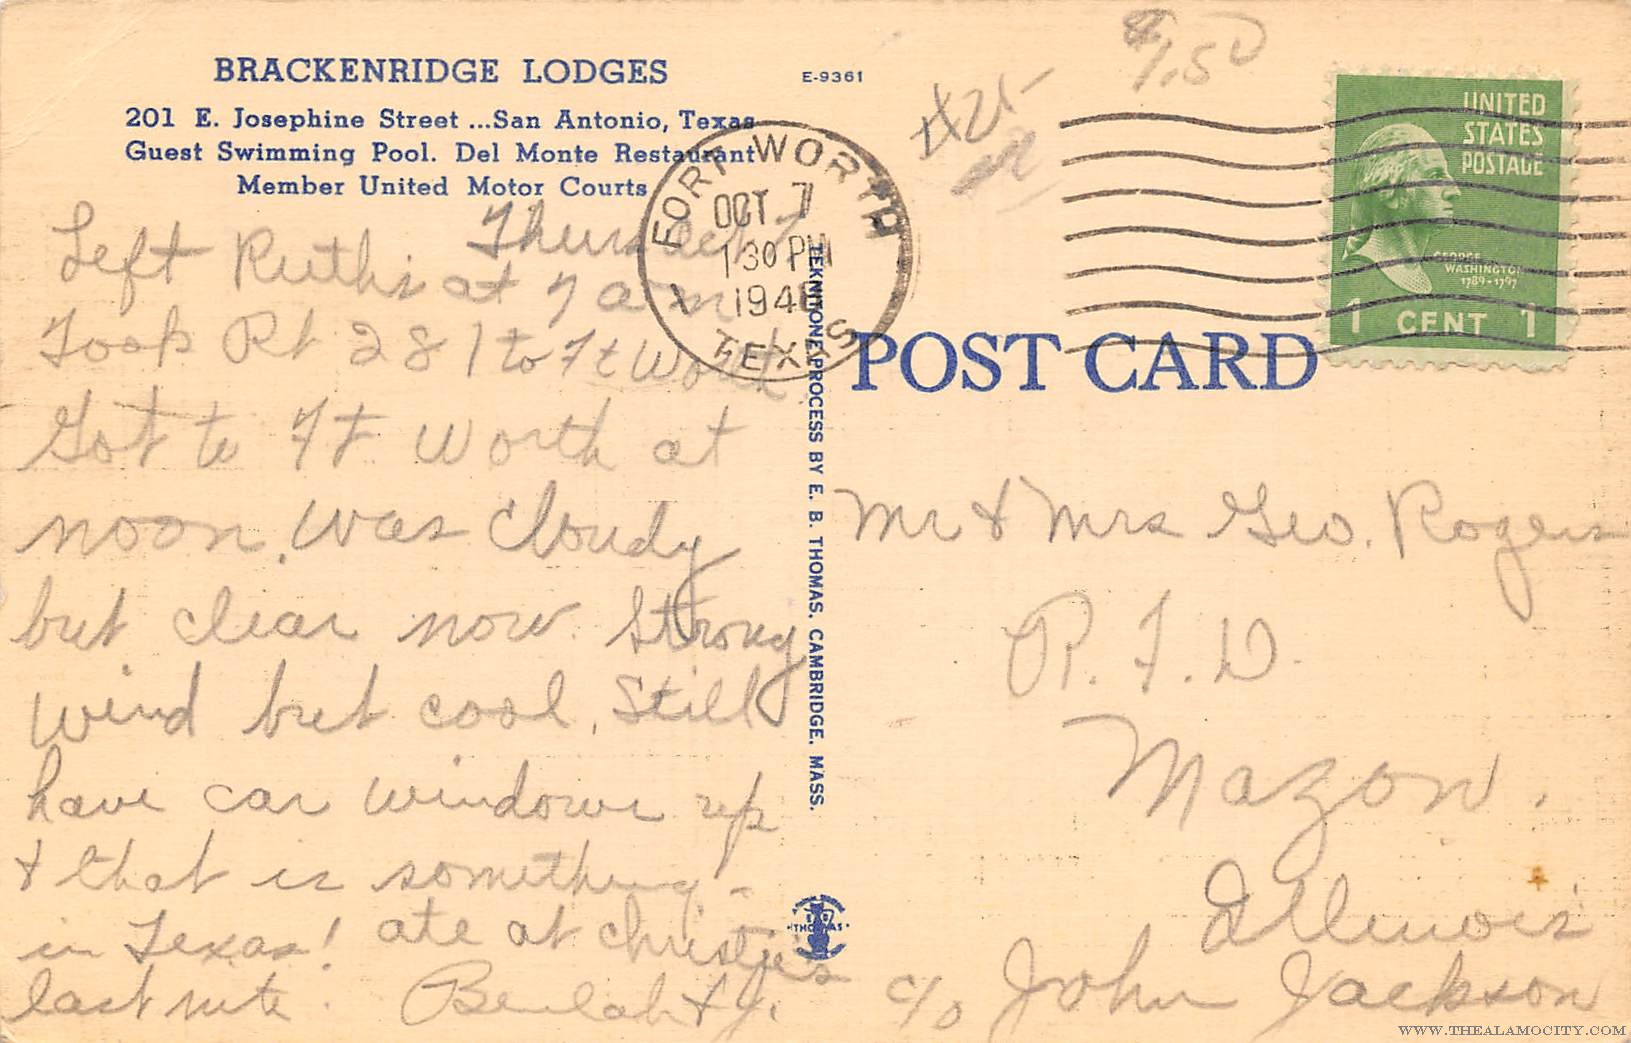 BRACKENRIDGE LODGES
E-9361
201 E. Josephine Street ...San Antonio, Texas
Guest Swimming Pool. Del Monte Restaurant
Member United Motor Courts
$1.50
#25-
FORT WORTH
OCT 7
1 30 PM
1948
TEXAS
UNITED
STATES
POSTAGE
GEORGE
WASHINGTON
1789-1797
1 CENT 1
POST CARD
TEKNITONE PROCESS BY E. B. THOMAS, CAMBRIDGE, MASS.
THOMAS
Left Ruth's at 7 am
Took Rt 281 to Ft Worth
Got to Ft Worth at
noon. Was cloudy
but clear now. Strong
wind but cool. Still
have car windows up
& that is something -
in Texas! ate at Christie's
last nite. Beulah & J.
Mr & Mrs Geo. Rogers
R. F. D.
Mazon,
Illinois
c/o John Jackson
WWW.THEALAMOCITY.COM